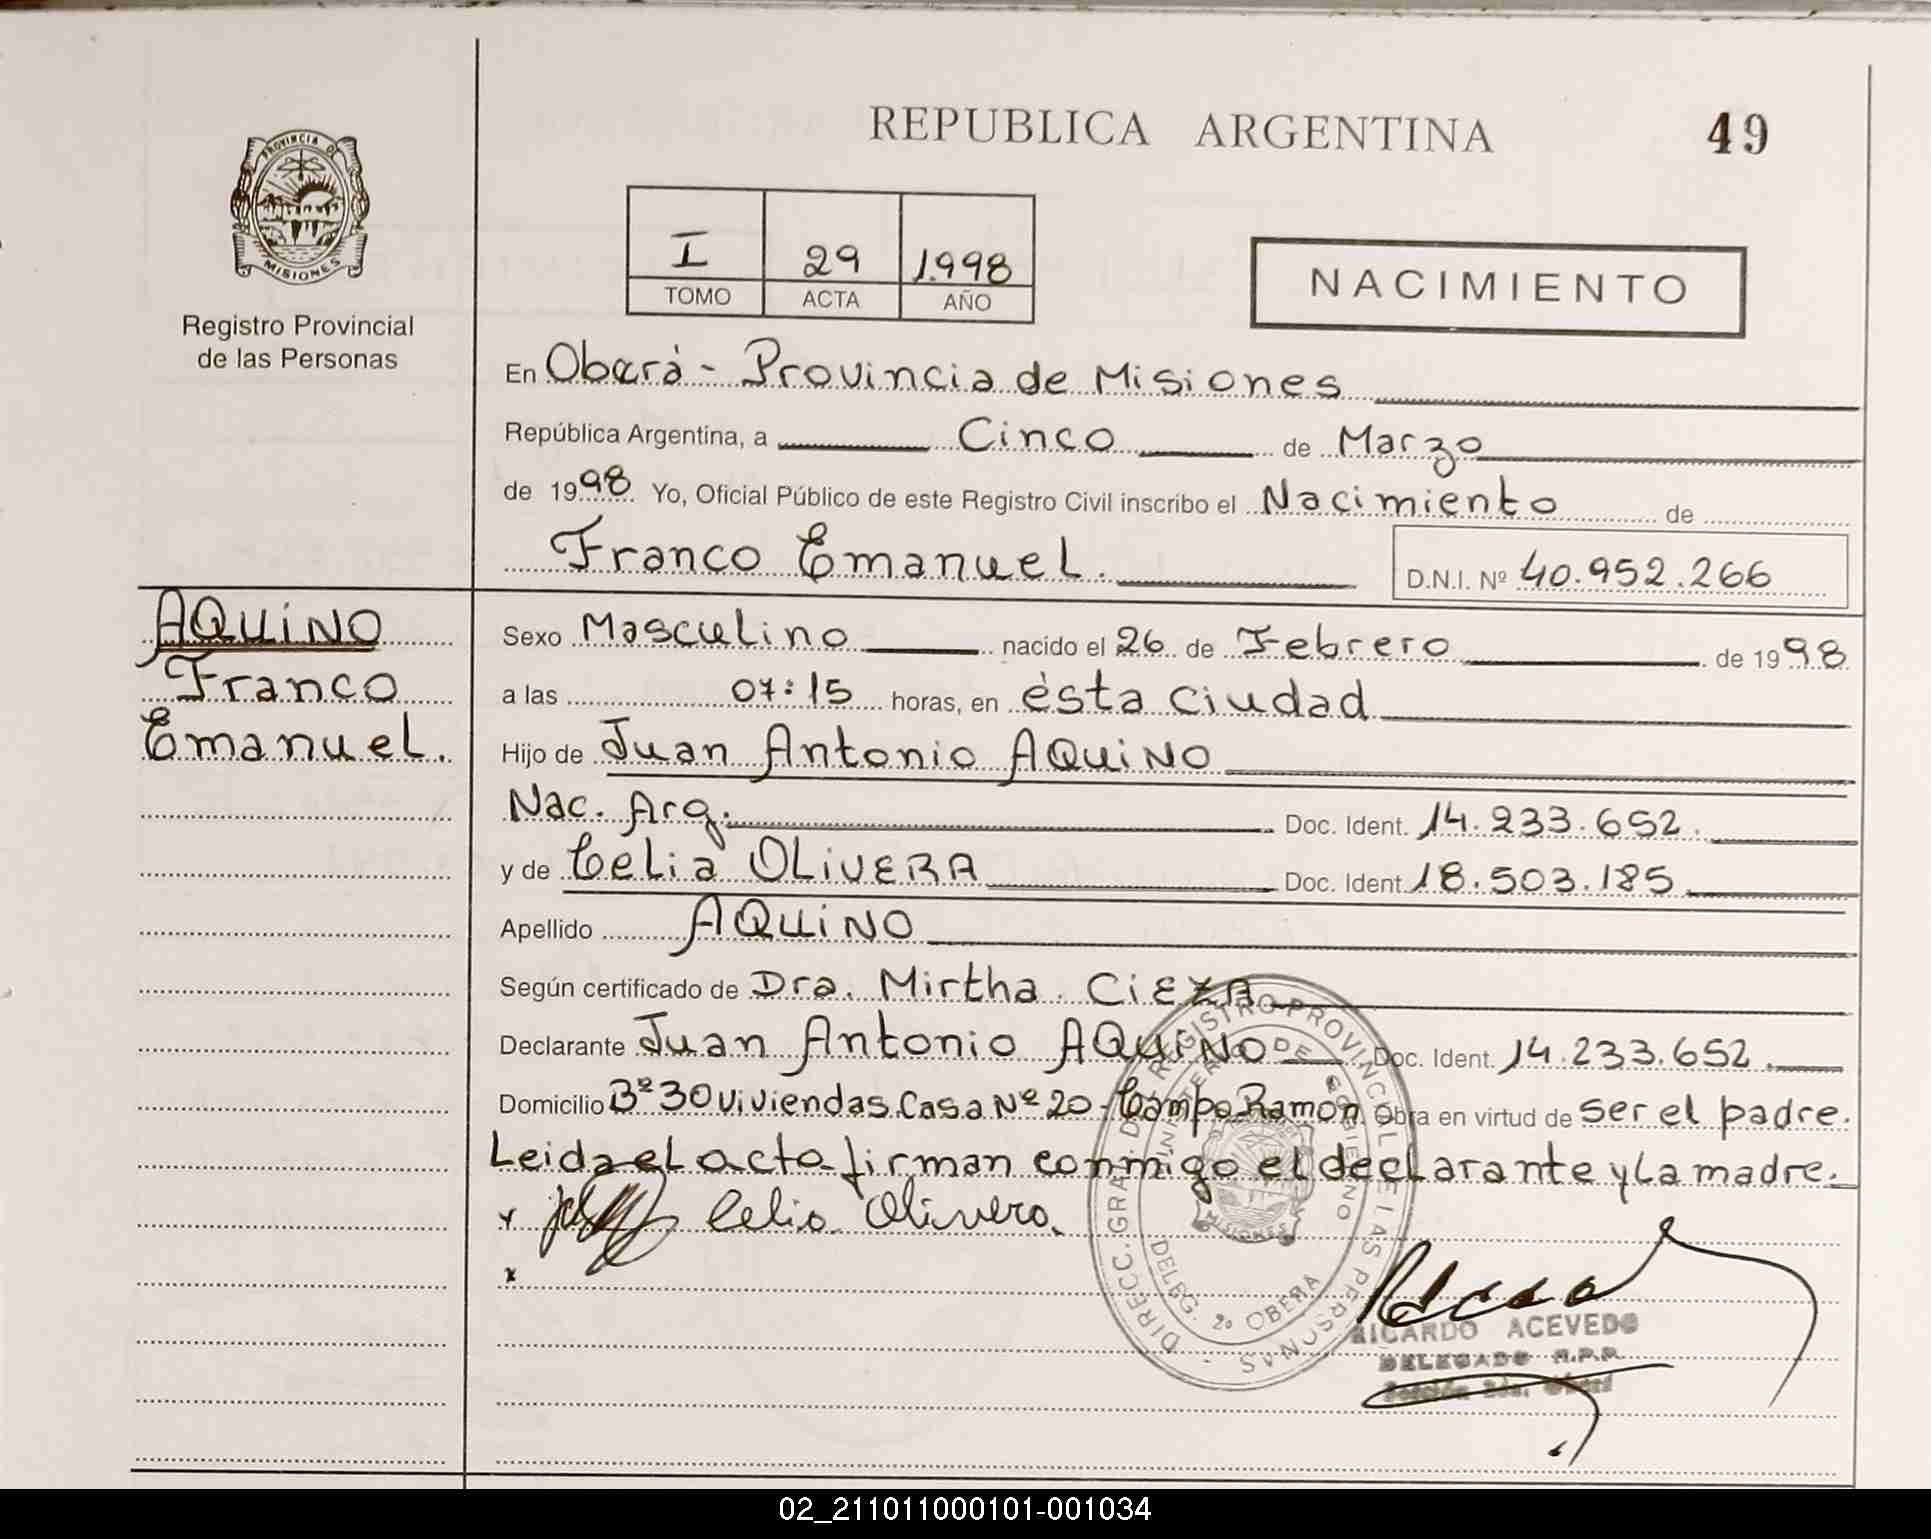 REPUBLICA ARGENTINA
49
PROVINCIA DE
MISIONES
Registro Provincial
de las Personas
I 29 1.998
TOMO ACTA AÑO
NACIMIENTO
En Oberá - Provincia de Misiones
República Argentina, a Cinco de Marzo
de 1998 Yo, Oficial Público de este Registro Civil inscribo el Nacimiento de
Franco Emanuel.
D.N.I. Nº 40.952.266
AQUINO
Franco
Emanuel.
Sexo Masculino nacido el 26 de Febrero de 1998
a las 07:15 horas, en ésta ciudad
Hijo de Juan Antonio AQUINO
Nac. Arg. Doc. Ident. 14.233.652.
y de Celia OLIVERA Doc. Ident. 18.503.185
Apellido AQUINO
Según certificado de Dra. Mirtha CIEZA
Declarante Juan Antonio AQUINO Doc. Ident. 14.233.652.
Domicilio Bº 30 viviendas Casa Nº 20 - Campo Ramón Obra en virtud de ser el padre.
Leida el acta firman conmigo el declarante y la madre.
x Celia Olivera.
x
DIRECC. GRAL. DE REGISTRO PROVINCIAL DE LAS PERSONAS
MINISTERIO DE GOBIERNO
MISIONES
DELEG. 2º OBERA
RICARDO ACEVEDO
DELEGADO R.P.P.
Sección 2da. Oberá
02_211011000101-001034